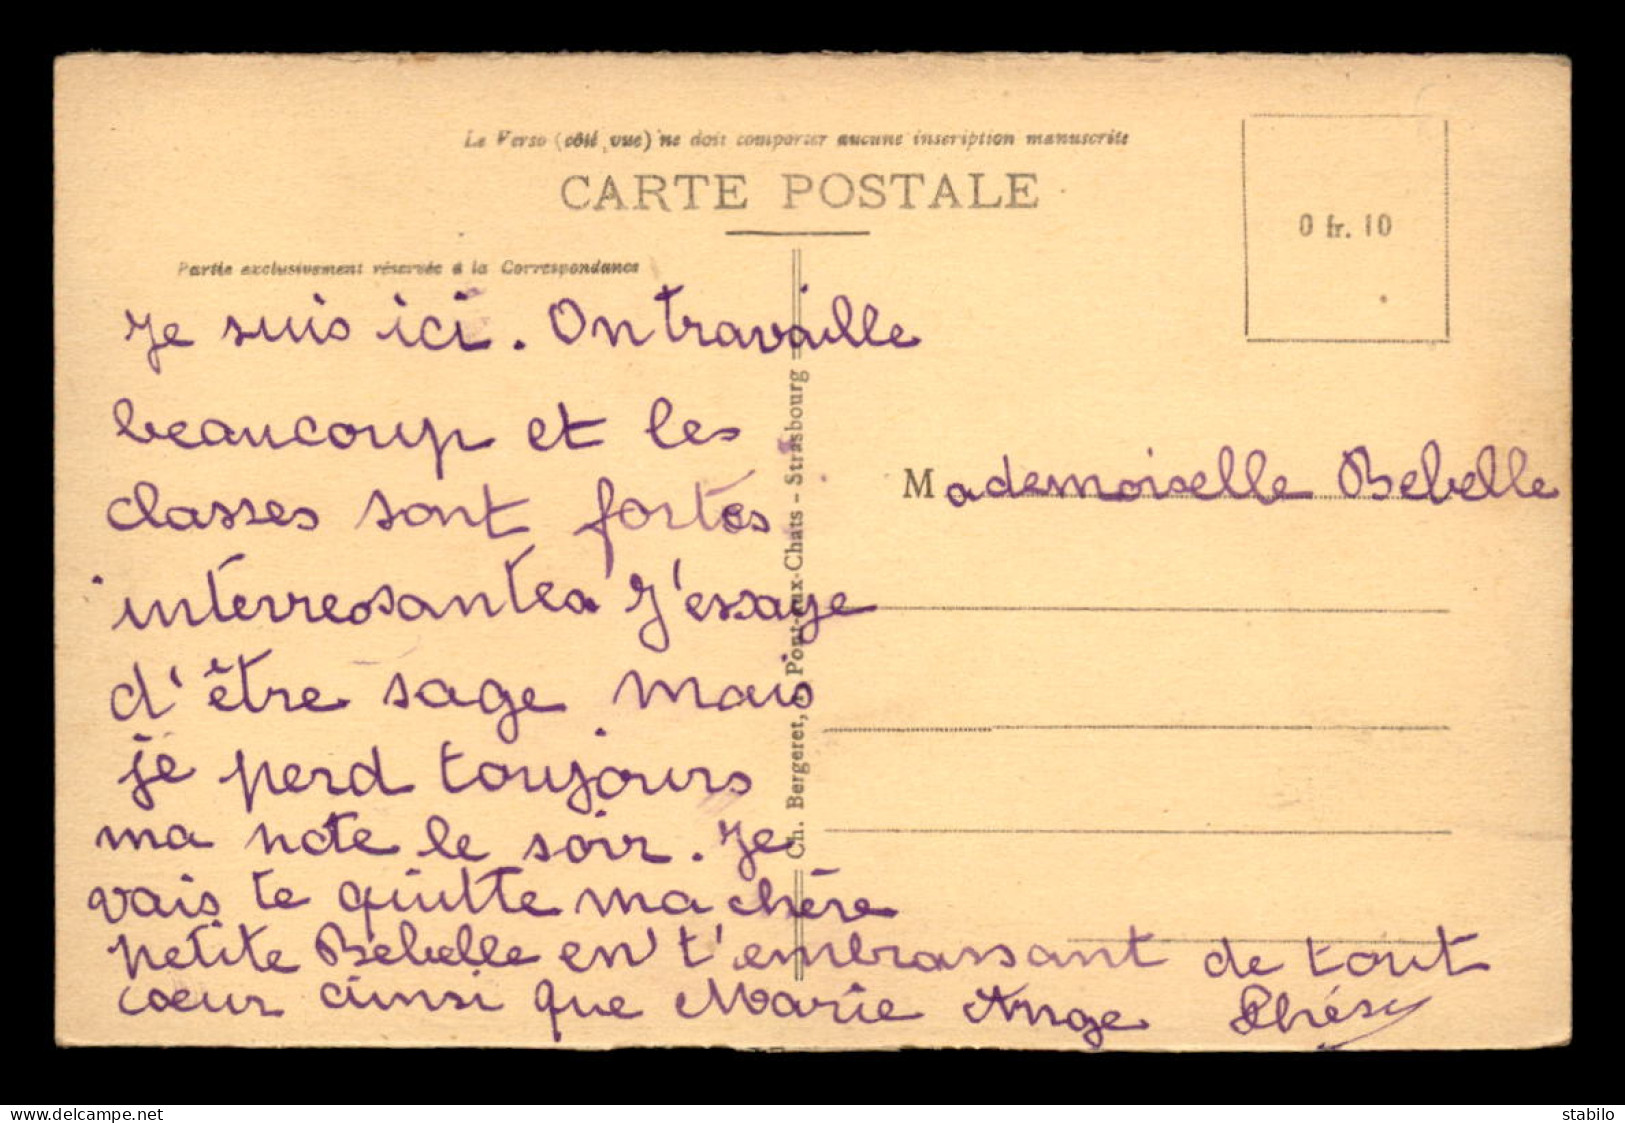 Le Verso (côté vue) ne doit comporter aucune inscription manuscrite
CARTE POSTALE
0 fr. 10
Partie exclusivement réservée à la Correspondance
Je suis ici. On travaille
beaucoup et les
classes sont fortes
interresantes J'essaye
d'être sage mais
je perd toujours
ma note le soir. Je
vais te quitte ma chère
petite Bebelle en t'embrassant de tout
cœur ainsi que Marie Ange
Mademoiselle Bebelle
Ch. Bergeret, Pont-aux-Chats - Strasbourg
www.delcampe.net
stabilo